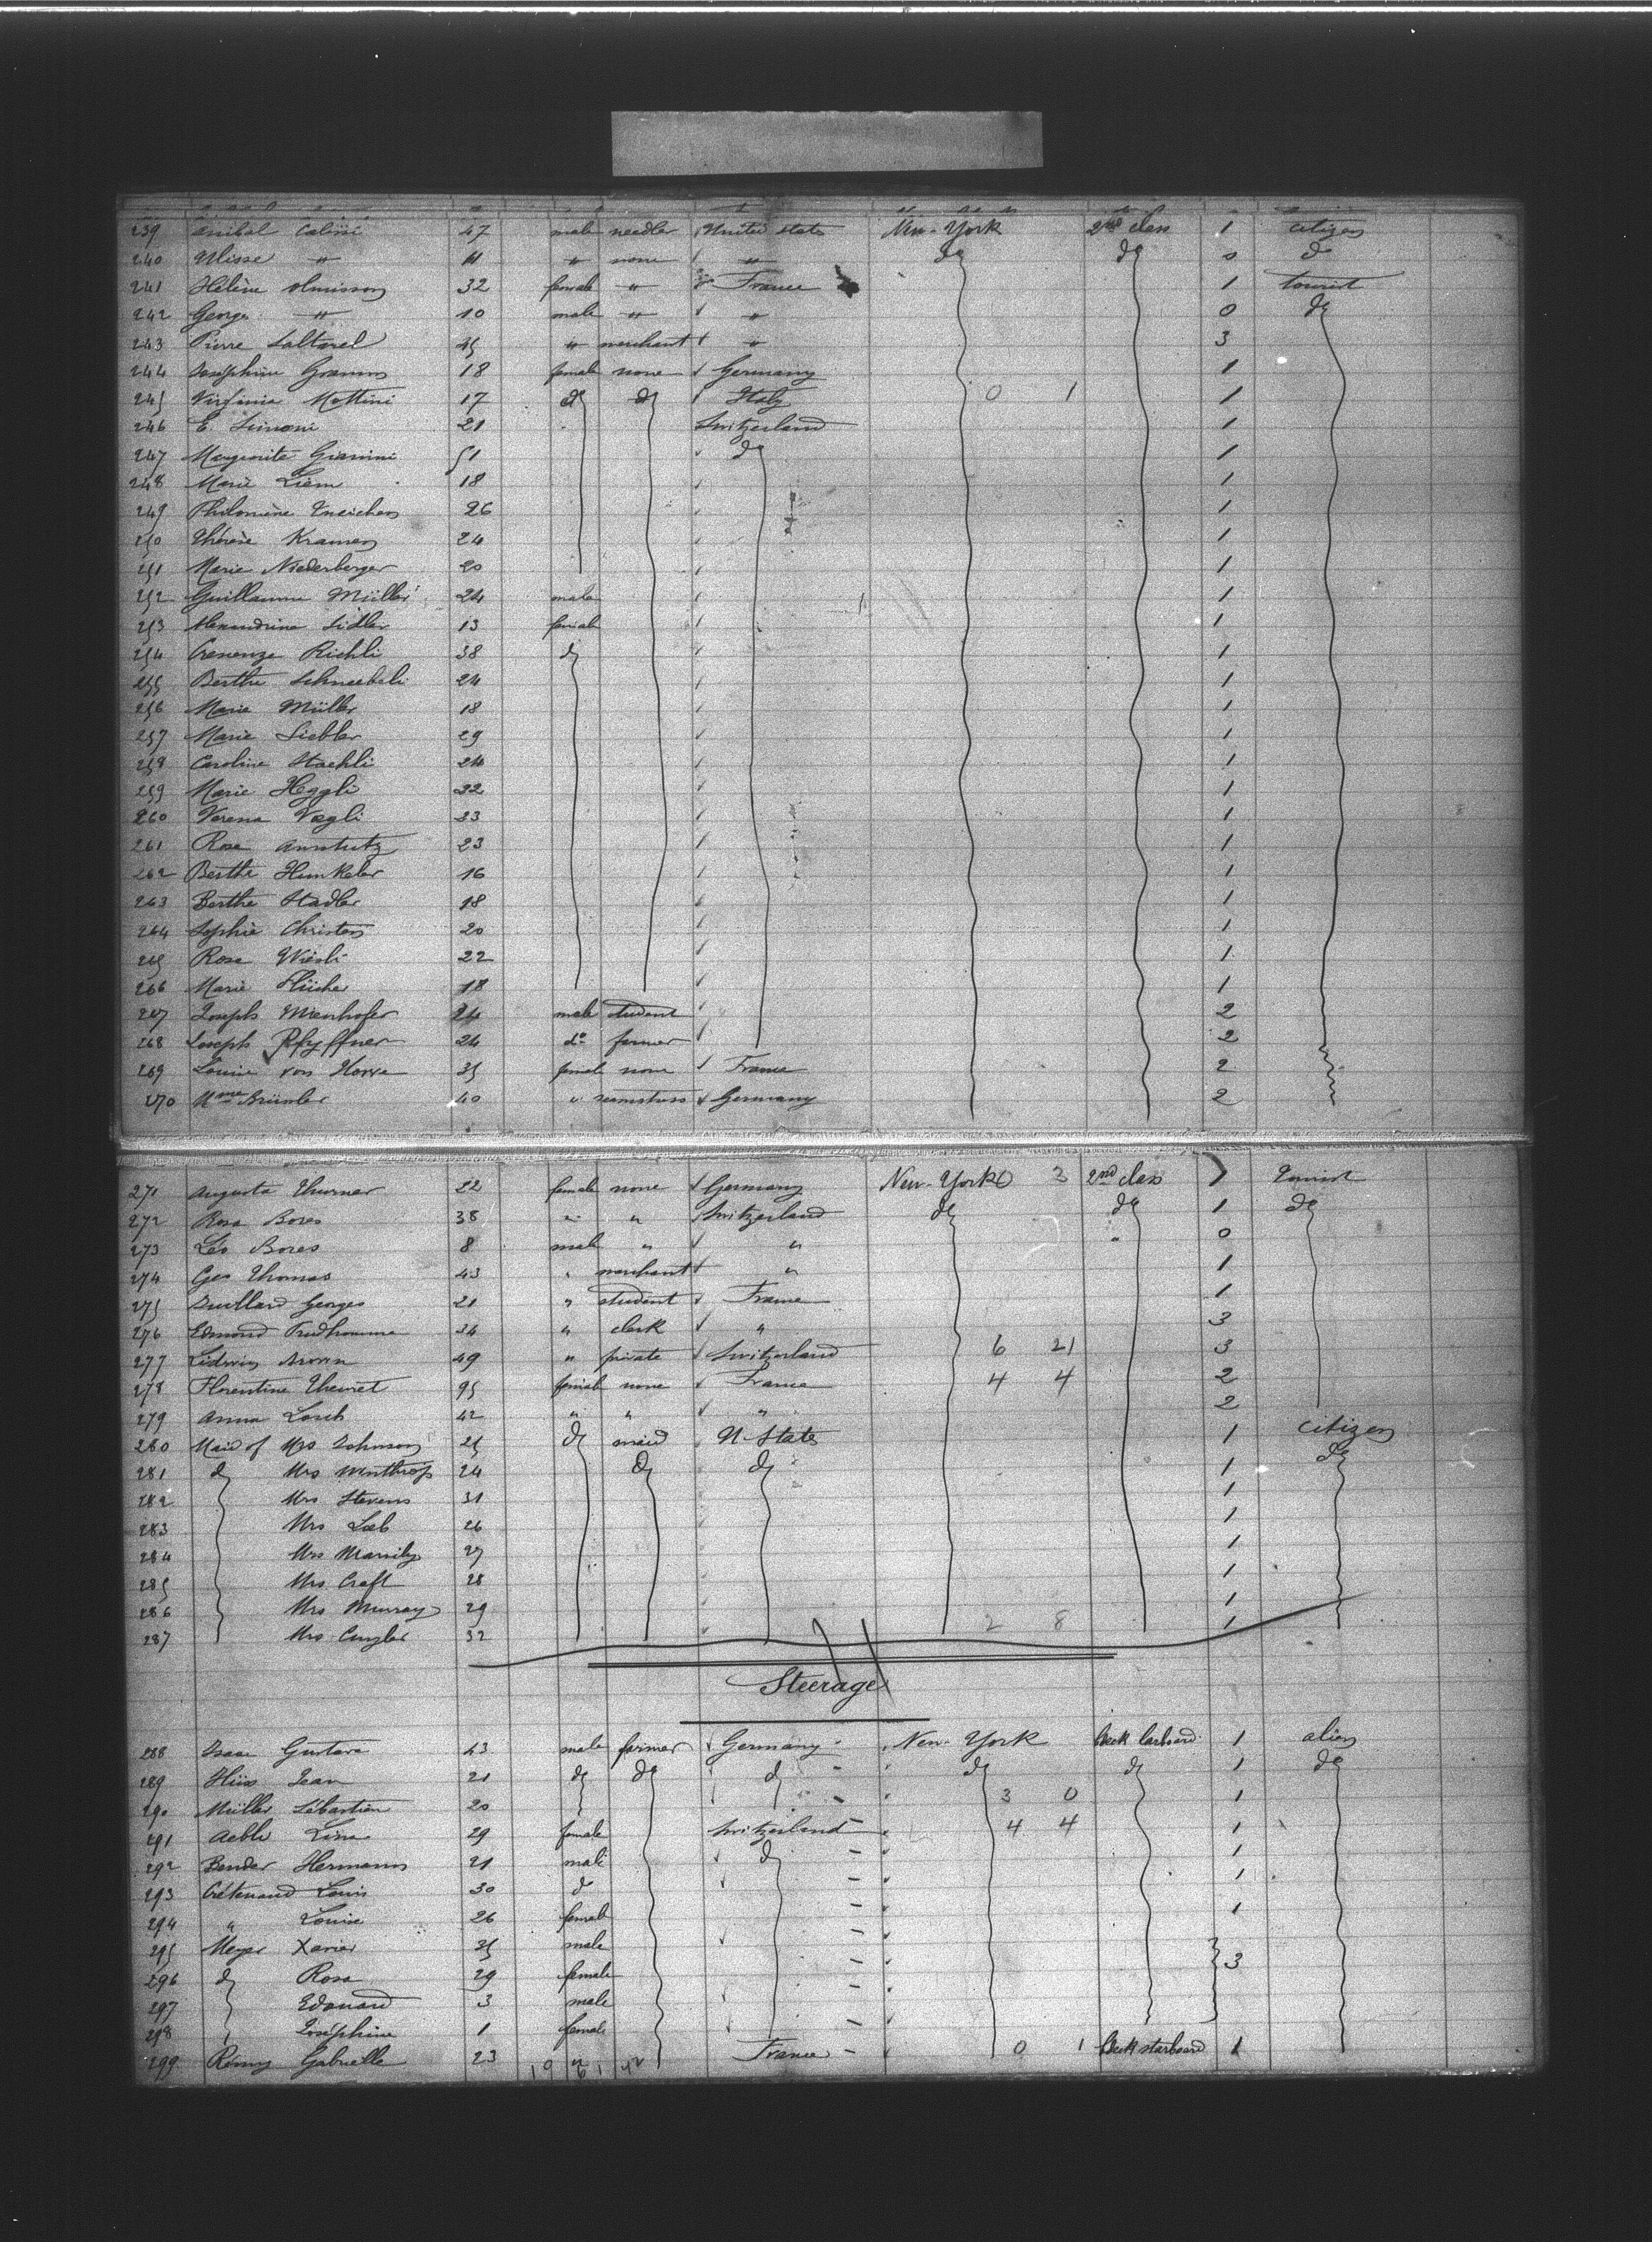 239 Anibal Calini 47 male needler United States New-York 2nd class 1 citizen
240 Ulisse " 11 " none " do do 0 do
241 Hélène 32 female " France 1 tourist
242 George " 10 male " " 0 do
243 Pierre Saltarel 45 " merchant " 3
244 Joséphine 18 female none Germany 1
245 Virginia Mottini 17 do do Italy 0 1 1
246 E. Simoni 21 Switzerland 1
247 Marguerite Giannini 51 do 1
248 Marie Liem 18 1
249 Philomène 26 1
250 Thérèse Kramer 24 1
251 Marie Niederberger 20 1
252 Guillaume Müller 24 male 1
253 Alexandrine Sidler 13 female 1
254 Richli 38 do 1
255 Berthe Schneebeli 24 1
256 Marie Müller 18 1
257 Marie Siebler 29 1
258 Caroline Staehli 24 1
259 Marie Heggli 22 1
260 Verena Voegli 23 1
261 Rosa Amstutz 23 1
262 Berthe Hunkeler 16 1
263 Berthe Stadler 18 1
264 Sophie Christen 20 1
265 Rosa Wiesli 22 1
266 Marie 18 1
267 Joseph 24 male student 2
268 Joseph Pfyffner 24 do farmer 2
269 Louise von Horve 35 female none France 2
270 Mme Brünler 40 " seamstress Germany 2
271 Augusta Thurner 22 female none Germany New-York 0 3 2nd class 1 tourist
272 Rosa Bores 38 " " Switzerland do do 1 do
273 Léo Bores 8 male " " " 0
274 Geo Thomas 43 " merchant " 1
275 Georges 21 " student France 1
276 Edmond Prudhomme 34 " clerk " 3
277 49 " private Switzerland 6 21 3
278 Florentine Thevret 95 female none France 4 4 2
279 Anna Lorch 42 " " " 2
280 Maid of Mrs Johnson 25 do maid U-States 1 citizen
281 do Mrs Winthrop 24 do do 1 do
282 Mrs Stevens 31 1
283 Mrs Loeb 26 1
284 Mrs 27 1
285 Mrs Craft 28 1
286 Mrs Murray 29 1
287 Mrs Cuyler 32 2 8 1
Steerage
288 Isaac Gustave 43 male farmer Germany New-York Deck larboard 1 alien
289 Hüss Jean 21 do do do do do 1 do
290 Müller Sébastien 20 3 0 1
291 Aebli Lina 29 female Switzerland 4 4 1
292 Bender Hermann 21 male do 1
293 Crétenand Louis 30 do 1
294 " Louise 26 female 1
295 Meyer Xavier 35 male
296 do Rosa 29 female 3
297 Edouard 3 male
298 Joséphine 1 female
299 Rémy Gabrielle 23 " France 0 1 Deck starboard 1